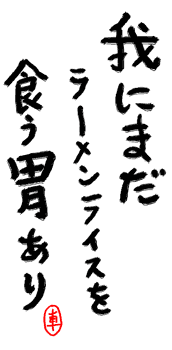 我にまだ
ラーメンライスを
食う胃あり
車